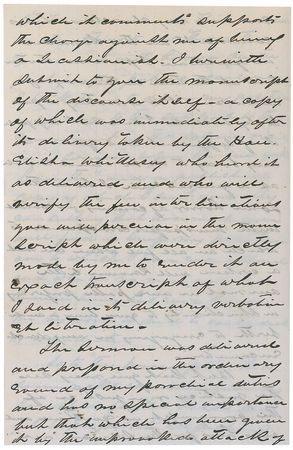 which it comments supports
the charge against me of being
a Secessionist. I herewith
submit to you the manuscript
of the discourse itself - a copy
of which was immediately after
its delivery taken by the Hon.
Elisha Whittlesey who heard it
as delivered and who will
verify the few interlineations
you will perceive in the manu
script which were directly
made by me to render it an
exact transcript of what
I said in its delivery verbatim
et literatim.
The Sermon was delivered
and prepared in the ordinary
round of my parochial duties
and has no special importance
but that which has been given
it by the unprovoked attack of